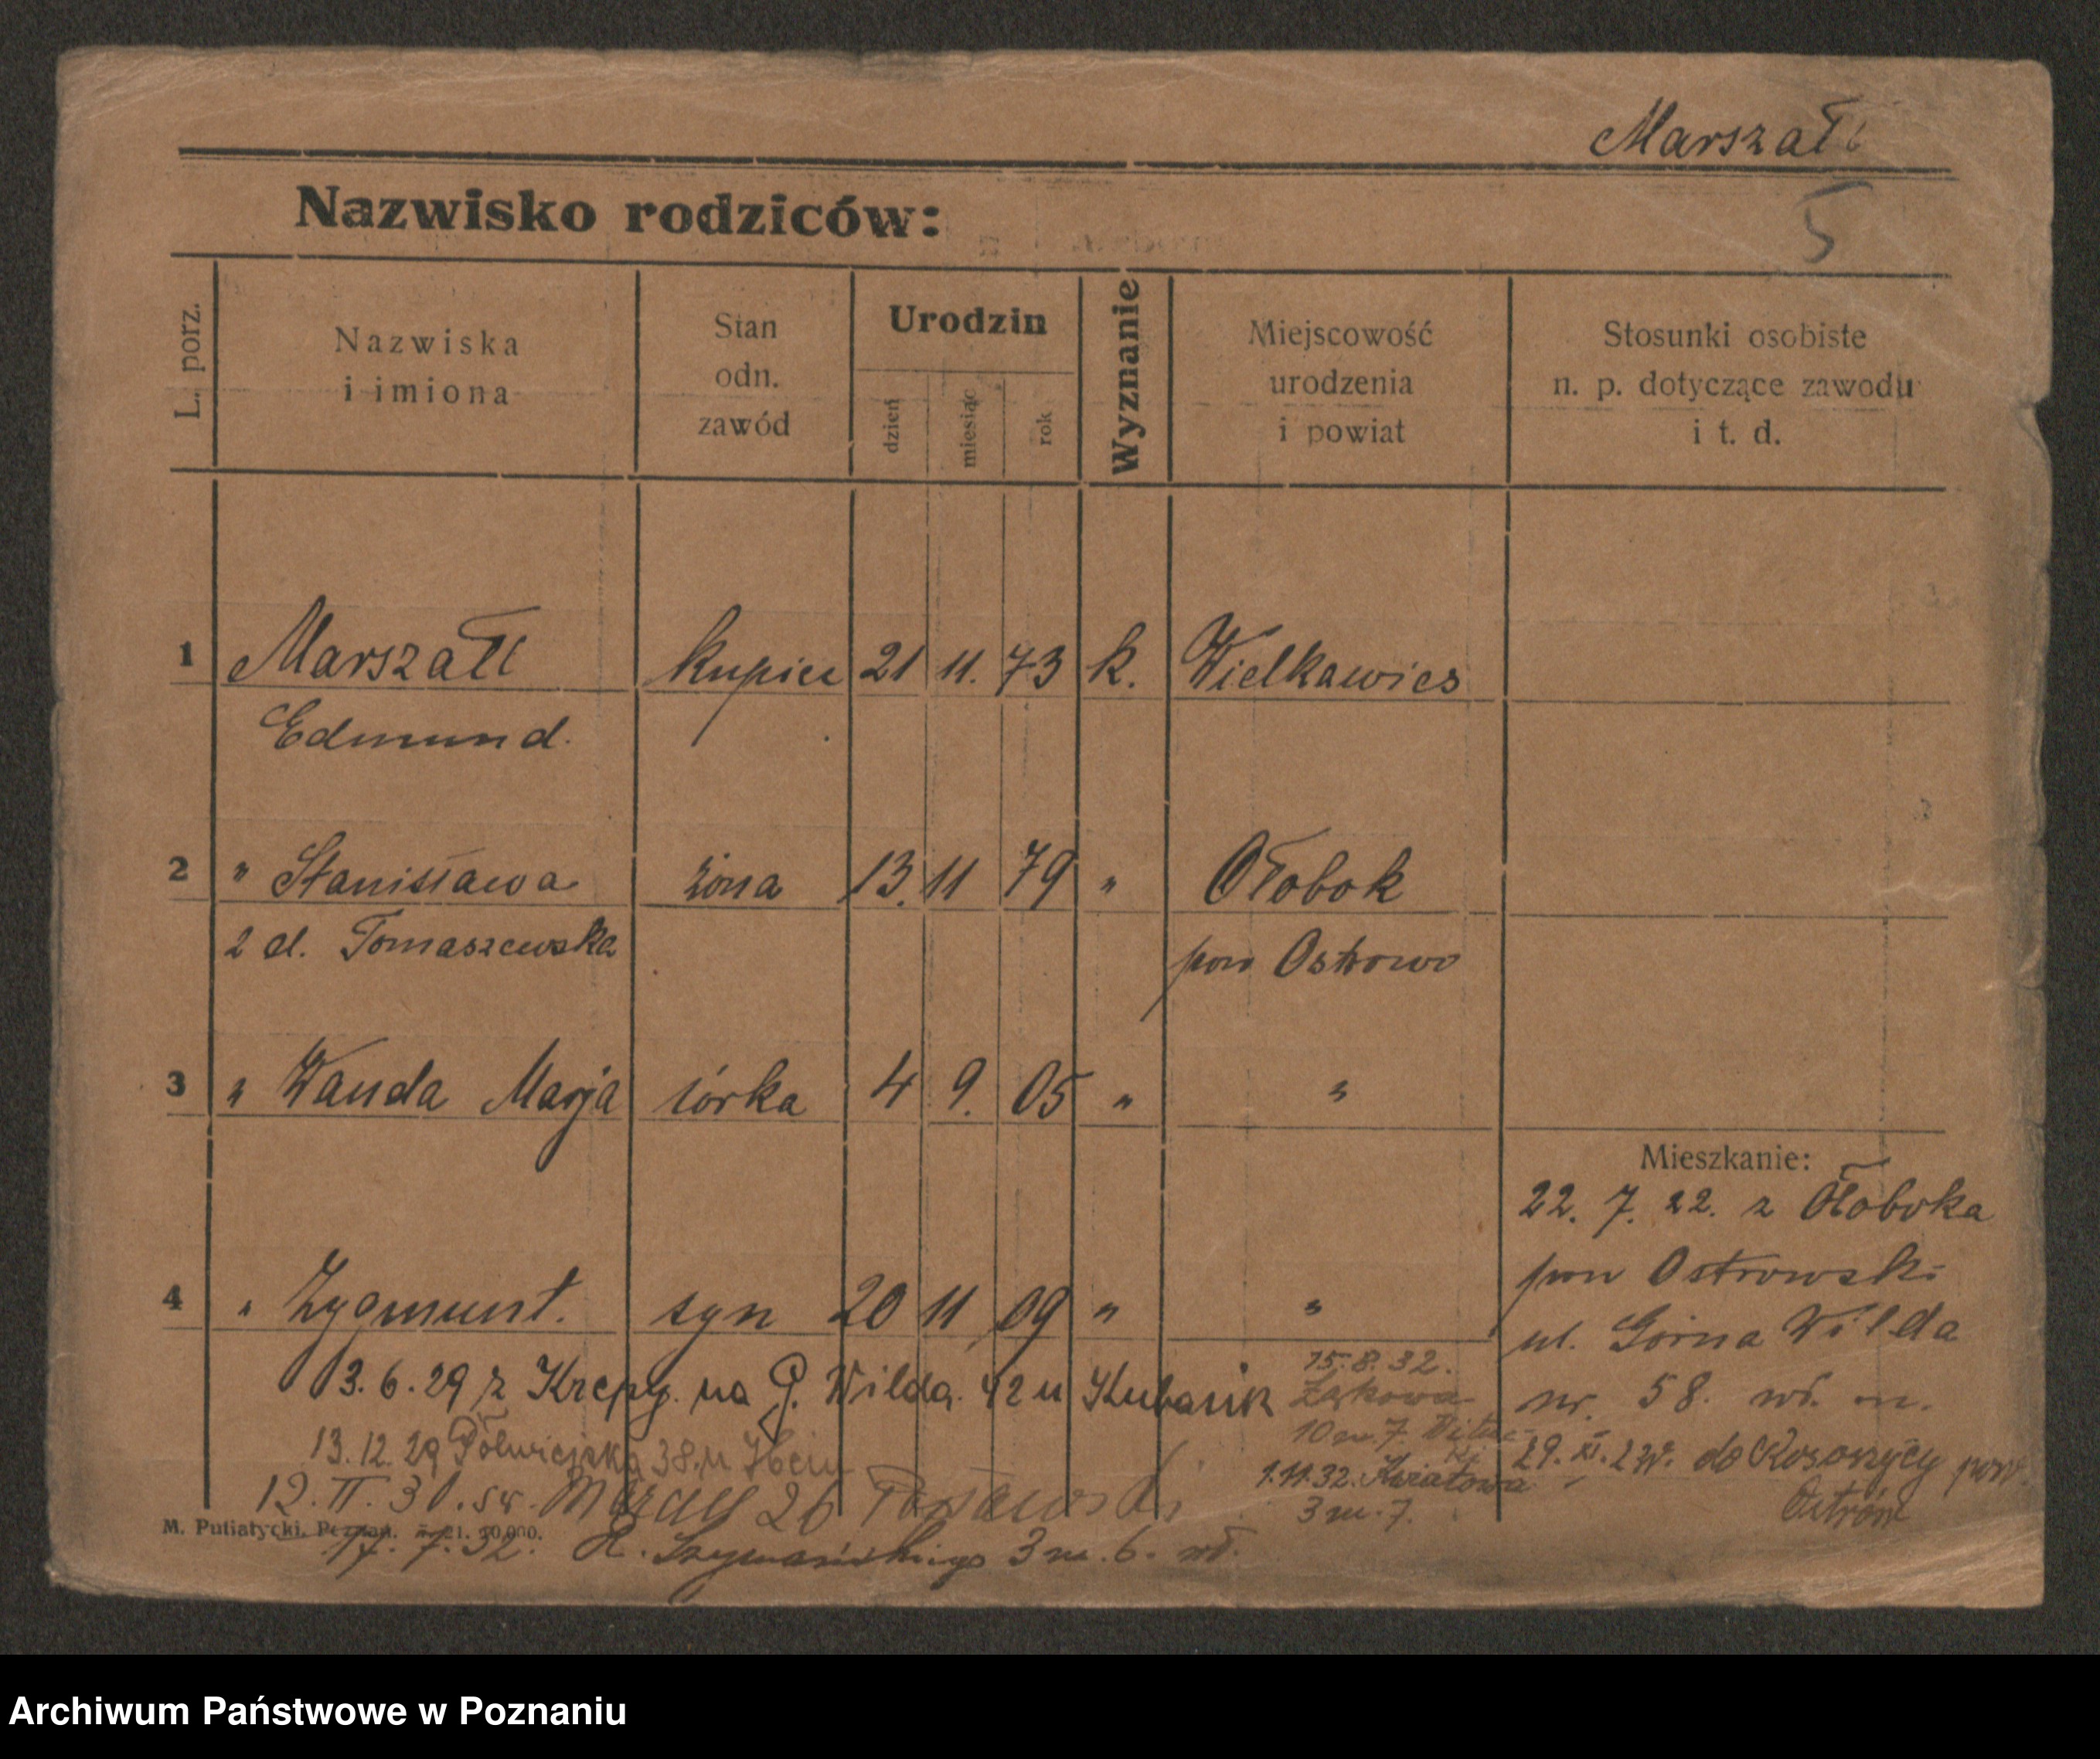 Marszałł
5
Nazwisko rodziców:
L. porz.
Nazwiska i imiona
Stan odn. zawód
Urodzin
dzień
miesiąc
rok
Wyznanie
Miejscowość urodzenia i powiat
Stosunki osobiste n. p. dotyczące zawodu i t. d.
1 Marszałł kupiec 21 11. 73 k. Wielkawies
Edmund.
2 " Stanisława żona 13. 11 79 " Ołobok
2 d. Tomaszewska pow Ostrowo
3 " Wanda Marja córka 4 9. 05 " "
Mieszkanie:
22. 7. 22. z Ołoboka
pow Ostrowski
4 " Zygmunt. syn 20 11 09 " "
ul. Górna Wilda
nr. 58. wł. m.
13.6.29 z Krepy. na G. Wilda. 42 u Kubasik
15.8.32.
Żakowa
10 m 7.
13.12.29 Półwiejska 38. u
29. XI. do Rososzycy pow.
Ostrów
1.11.32. Kwiatowa
3 m. 7.
12. II. 31. św. 26
M. Putiatycki, Poznań. 21. 10,000.
17. 7. 32. Szymańskiego 3 m. 6. wł.
Archiwum Państwowe w Poznaniu